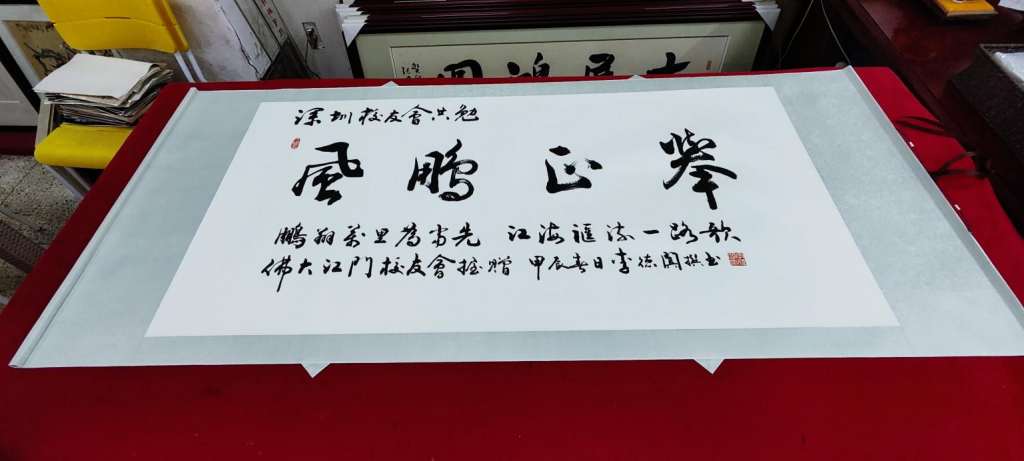 深圳校友會共勉
風鵬正舉
鵬翔萬里為當先 江海匯流一路歌
佛大江門校友會敬贈 甲辰春日李德閣撰书